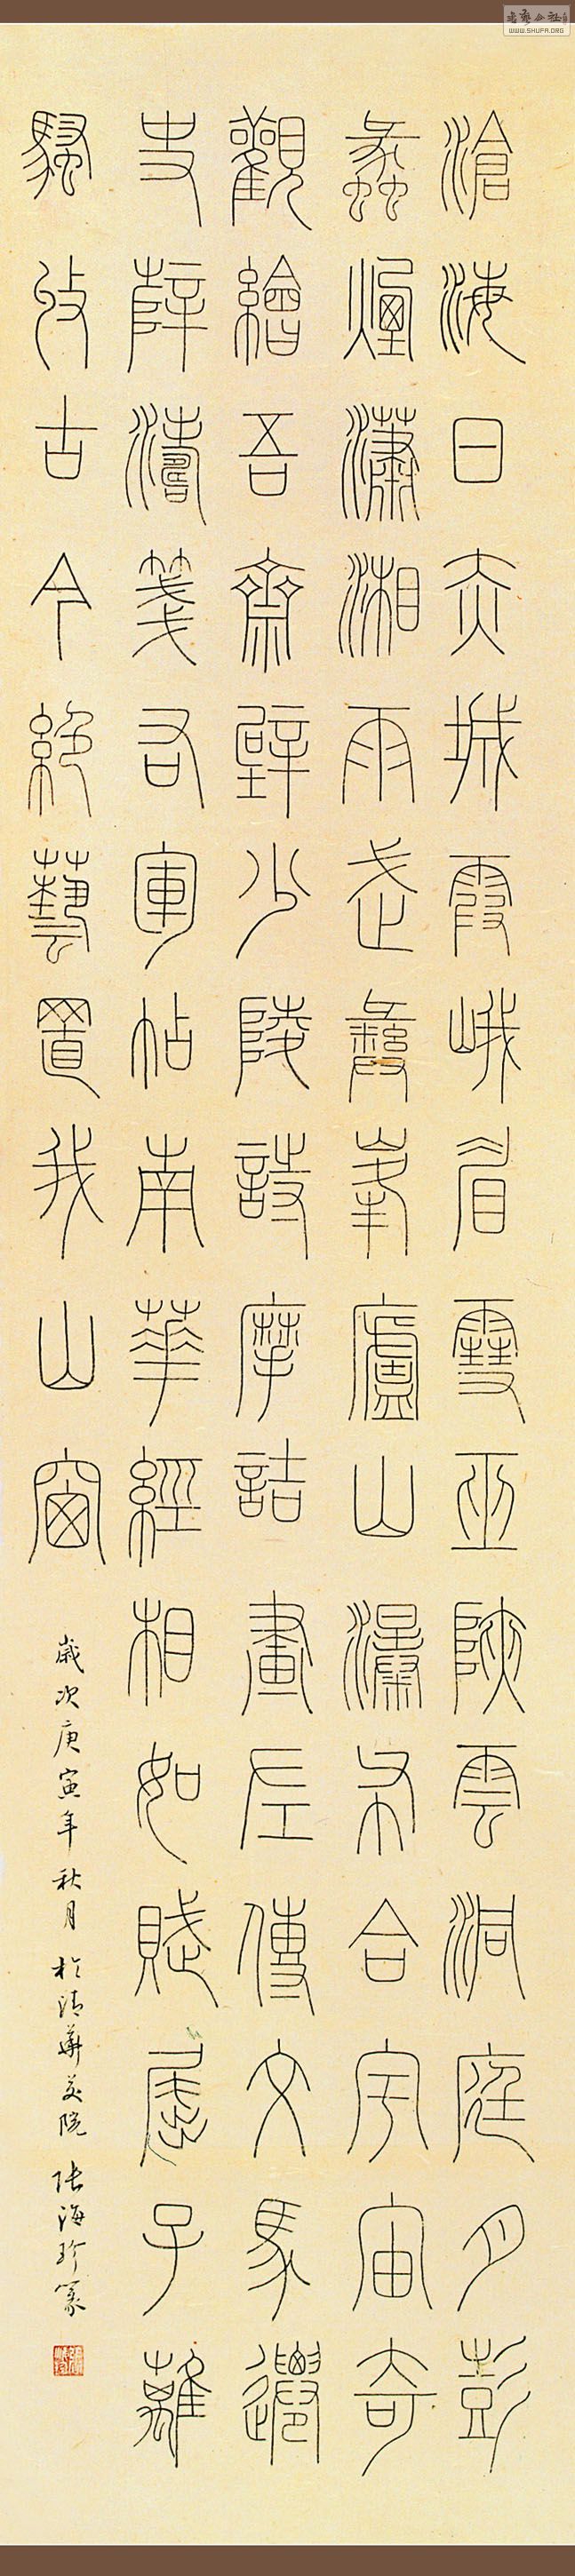 滄海日赤城霞峨眉雪巫陜雲洞庭月彭
蠡煙瀟湘雨武彝峯廬山瀑布合宇宙奇
觀繪吾齋壁少陵詩摩詰畫左傳文馬遷
史薛濤箋右軍帖南華經相如賦屈子離
騷收古今絕藝置我山窗
歲次庚寅年秋月於清華美院張海珍篆
WWW.SHUFA.ORG